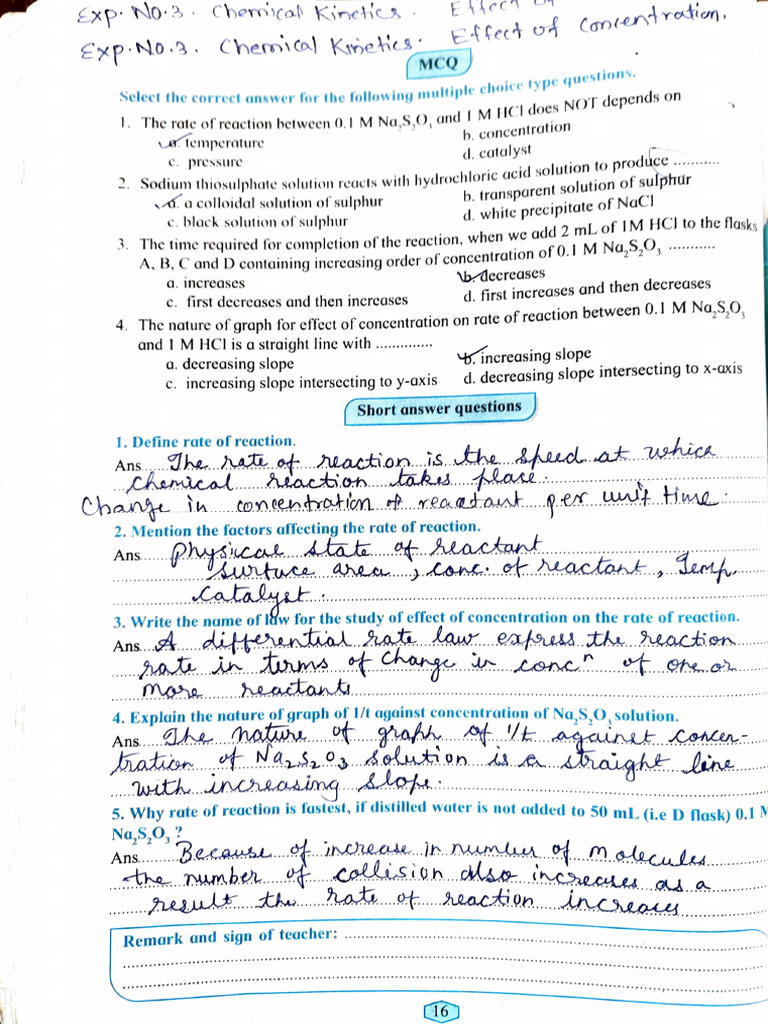 Exp. No. 3. Chemical Kinetics. Effect of
Exp. No. 3. Chemical Kinetics. Effect of Concentration.
MCQ
Select the correct answer for the following multiple choice type questions.
1. The rate of reaction between 0.1 M Na₂S₂O₃ and 1 M HCl does NOT depends on
a. temperature b. concentration
c. pressure d. catalyst
2. Sodium thiosulphate solution reacts with hydrochloric acid solution to produce ...........
a. a colloidal solution of sulphur b. transparent solution of sulphur
c. black solution of sulphur d. white precipitate of NaCl
3. The time required for completion of the reaction, when we add 2 mL of 1M HCl to the flasks
A, B, C and D containing increasing order of concentration of 0.1 M Na₂S₂O₃ ...........
a. increases b. decreases
c. first decreases and then increases d. first increases and then decreases
4. The nature of graph for effect of concentration on rate of reaction between 0.1 M Na₂S₂O₃
and 1 M HCl is a straight line with ..............
a. decreasing slope b. increasing slope
c. increasing slope intersecting to y-axis d. decreasing slope intersecting to x-axis
Short answer questions
1. Define rate of reaction.
Ans The rate of reaction is the speed at which
chemical reaction takes place.
Change in concentration of reactant per unit time.
2. Mention the factors affecting the rate of reaction.
Ans Physical state of reactant
surface area, conc. of reactant, Temp.
Catalyst.
3. Write the name of law for the study of effect of concentration on the rate of reaction.
Ans A differential rate law express the reaction
rate in terms of change in concⁿ of one or
more reactants
4. Explain the nature of graph of 1/t against concentration of Na₂S₂O₃ solution.
Ans The nature of graph of 1/t against concen-
tration of Na₂S₂O₃ solution is a straight line
with increasing slope.
5. Why rate of reaction is fastest, if distilled water is not added to 50 mL (i.e D flask) 0.1 M
Na₂S₂O₃ ?
Ans Because of increase in number of molecules
the number of collision also increases as a
result the rate of reaction increaces
Remark and sign of teacher:
16